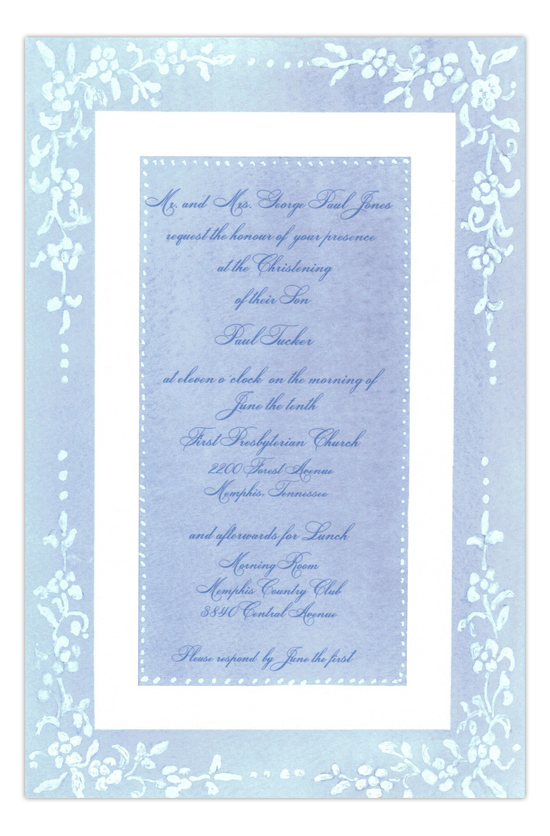 Mr. and Mrs. George Paul Jones
request the honour of your presence
at the Christening
of their Son
Paul Tucker
at eleven o'clock on the morning of
June the tenth
First Presbyterian Church
2200 Forest Avenue
Memphis, Tennessee
and afterwards for Lunch
Morning Room
Memphis Country Club
3840 Central Avenue
Please respond by June the first